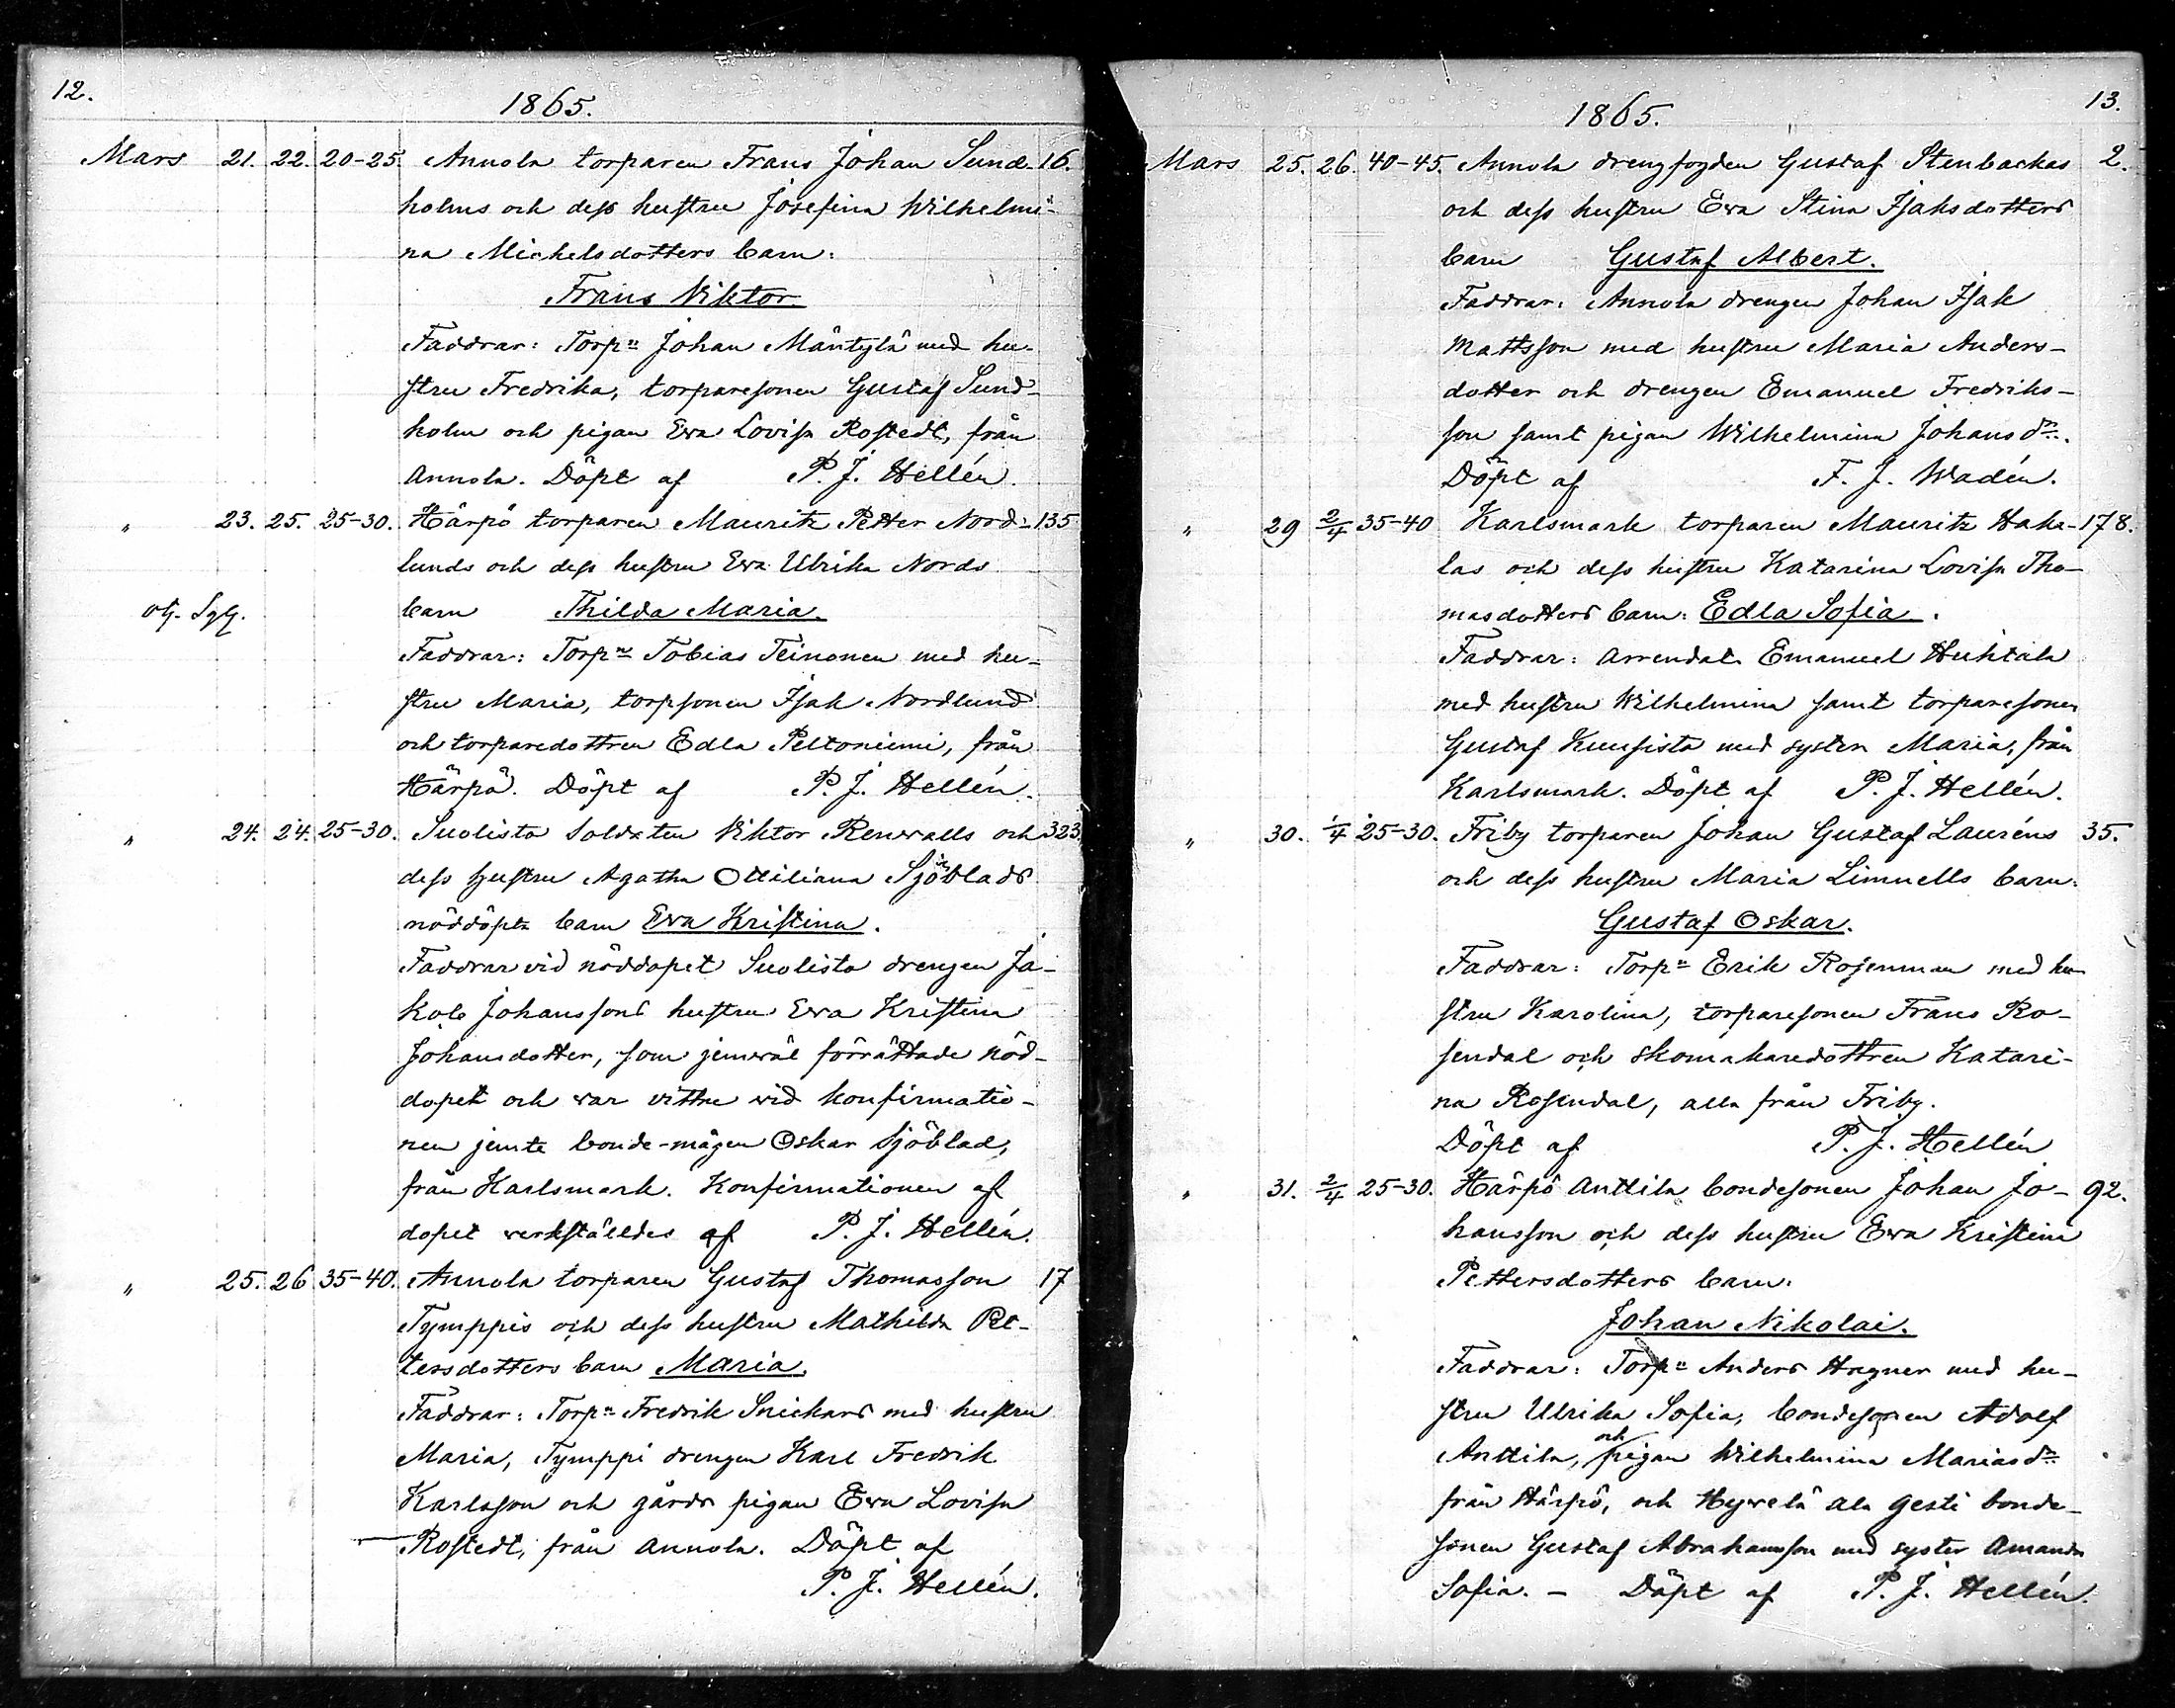 12.
1865.
Mars 21. 22. 20-25. Annola torparen Frans Johan Sund- 16.
holms och dess hustru Josefina Wilhelmi-
na Michelsdotters barn:
Frans Viktor.
Faddrar: Torpn Johan Mäntylä med hu-
stru Fredrika, torparesonen Gustaf Sund-
holm och pigan Eva Lovisa Rostedt, från
Annola. Döpt af P. J. Hellén.
" 23. 25. 25-30. Härpö torparen Mauritz Petter Nord- 135
lunds och dess hustru Eva Ulrika Nords
barn Thilda Maria.
Faddrar: Torpn Tobias Teinonen med hu-
stru Maria, torpsonen Isak Nordlund
och torparedottren Edla Peltoniemi, från
Härpö. Döpt af P. J. Hellén.
" 24. 24. 25-30. Suolisto Soldaten Viktor Renvalls och 323.
dess hustru Agatha Ottiliana Sjöblads
nöddöpta barn Eva Kristina.
Faddrar vid nöddopet Suolisto drengen Ja-
kob Johanssons hustru Eva Kristina
Johansdotter, som jemväl förrättade nöd-
dopet och var vittne vid konfirmatio-
nen jemte bonde-mågen Oskar Sjöblad,
från Karlsmark. Konfirmationen af
dopet verkställdes af P. J. Hellén.
" 25. 26 35-40. Annola torparen Gustaf Thomasson 17
Tymppis och dess hustru Mathilda Pet-
tersdotters barn Maria.
Faddrar: Torpn Fredrik Snickars med hustru
Maria, Tymppi drengen Karl Fredrik
Karlsson och gårds pigan Eva Lovisa
Rostedt, från Annola. Döpt af
P. J. Hellén.
13.
1865.
Mars 25. 26. 40-45. Annola drengfogden Gustaf Stenbackas 2.
och dess hustru Eva Stina Isaksdotters
barn Gustaf Albert.
Faddrar: Annola drengen Johan Isak
Mattsson med hustru Maria Anders-
dotter och drengen Emanuel Fredriks-
son samt pigan Wilhelmina Johansdn.
Döpt af F. J. Wadén.
" 29 2/4 35-40 Karlsmark torparen Mauritz Haka- 178.
las och dess hustru Katarina Lovisa Tho-
masdotters barn: Edla Sofia.
Faddrar: Arrendat. Emanuel Huhtala
med hustru Wilhelmina samt torparesonen
Gustaf Kuusisto med syster Maria, från
Karlsmark. Döpt af P. J. Hellén.
" 30. 1/4 25-30. Friby torparen Johan Gustaf Lauréns 35.
och dess hustru Maria Limnells barn:
Gustaf Oskar.
Faddrar: Torpn Erik Rosenman med hu-
stru Karolina, torparesonen Frans Ro-
sendal och skomakaredottren Katari-
na Rosendal, alla från Friby.
Döpt af P. J. Hellén
" 31. 2/4 25-30. Härpö Anttila bondesonen Johan Jo- 92.
hansson och dess hustru Eva Kristina
Pettersdotters barn:
Johan Nikolai.
Faddrar: Torpn Anders Hagner med hu-
stru Ulrika Sofia, bondesonen Adolf
Anttila, och pigan Wilhelmina Mariasdn
från Härpö, och Hyvelä Ala Gesti bonde-
sonen Gustaf Abrahamsson med syster Amanda
Sofia. – Döpt af P. J. Hellén.